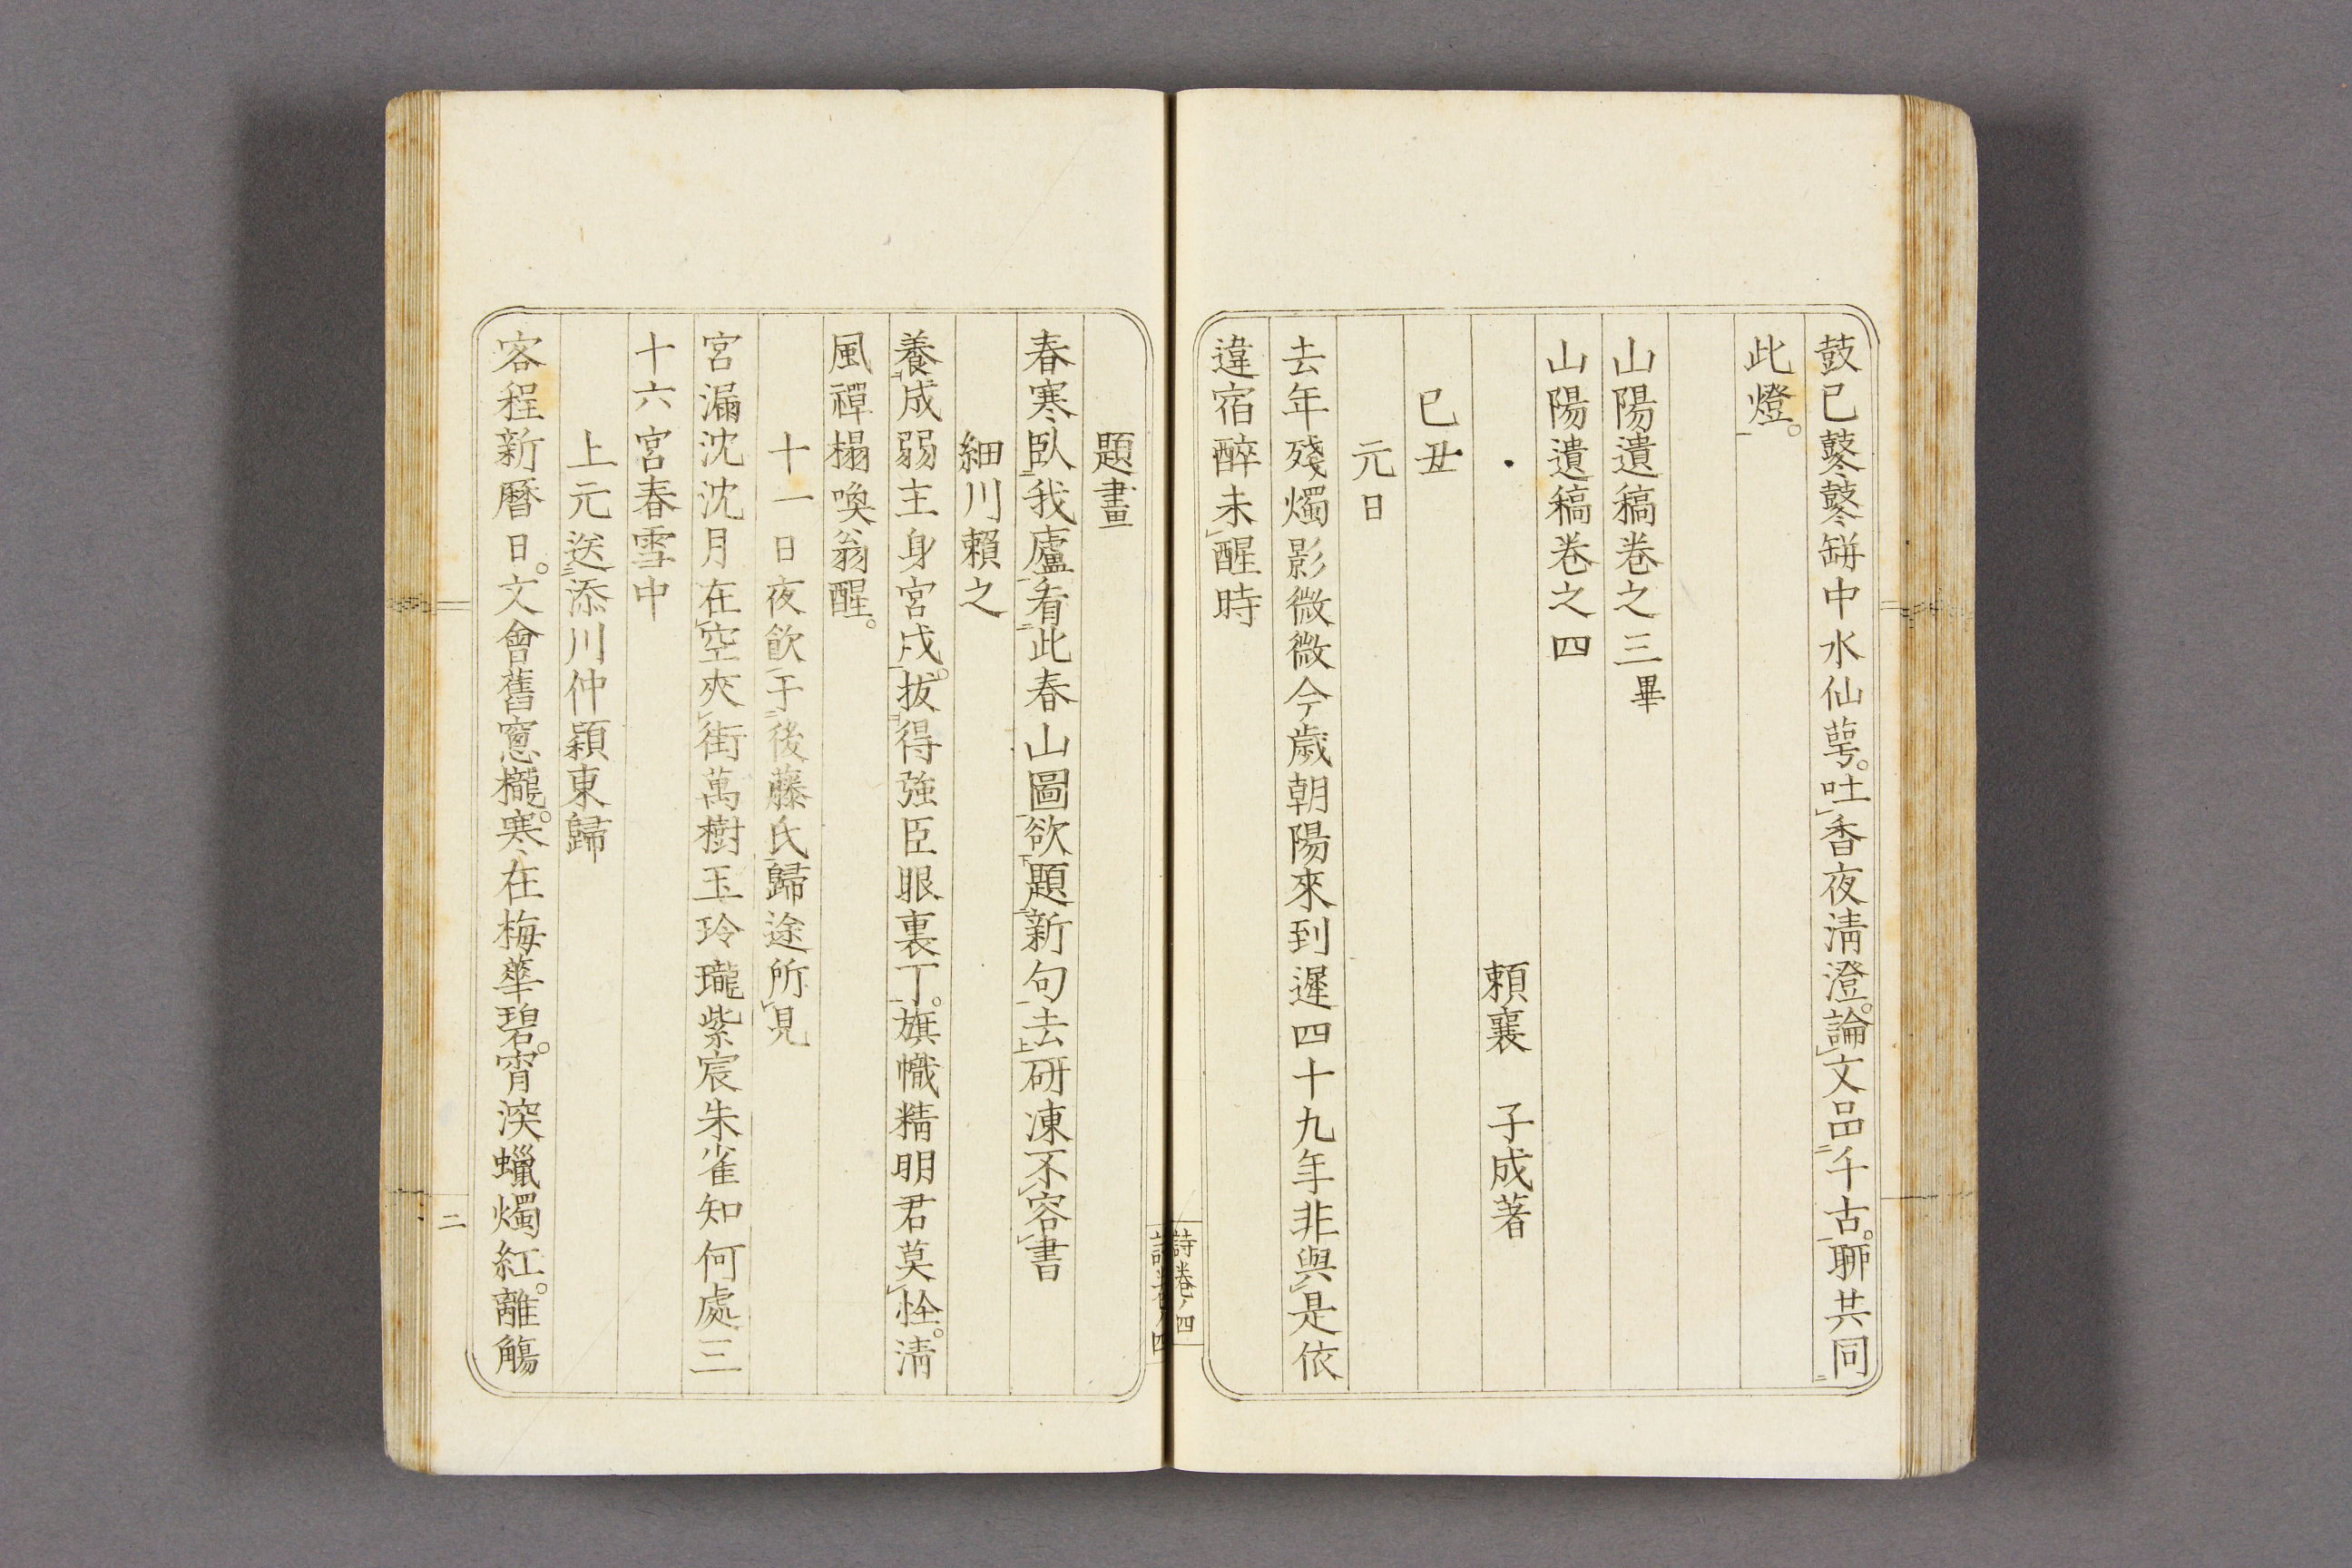 鼓已鼕鼕缾中水仙萼。吐香夜淸澄。論文品千古。聊共同
此燈。
山陽遺稿卷之三畢
山陽遺稿卷之四
賴襄 子成著
己丑
元日
去年殘燭影微微今歲朝陽來到遲四十九年非與是依
違宿醉未醒時
詩卷ノ四
詩卷ノ四
題畫
春寒臥我廬看此春山圖欲題新句去研凍不容書
細川賴之
養成弱主身宮戍。拔得強臣眼裏丁。旗幟精明君莫恠。淸
風禪榻喚翁醒。
十一日夜飮于後藤氏歸途所見
宮漏沈沈月在空夾街萬樹玉玲瓏紫宸朱雀知何處三
十六宮春雪中
上元送添川仲穎東歸
客程新曆日。文會舊窻櫳。寒在梅華碧。宵深蠟燭紅。離觴
二